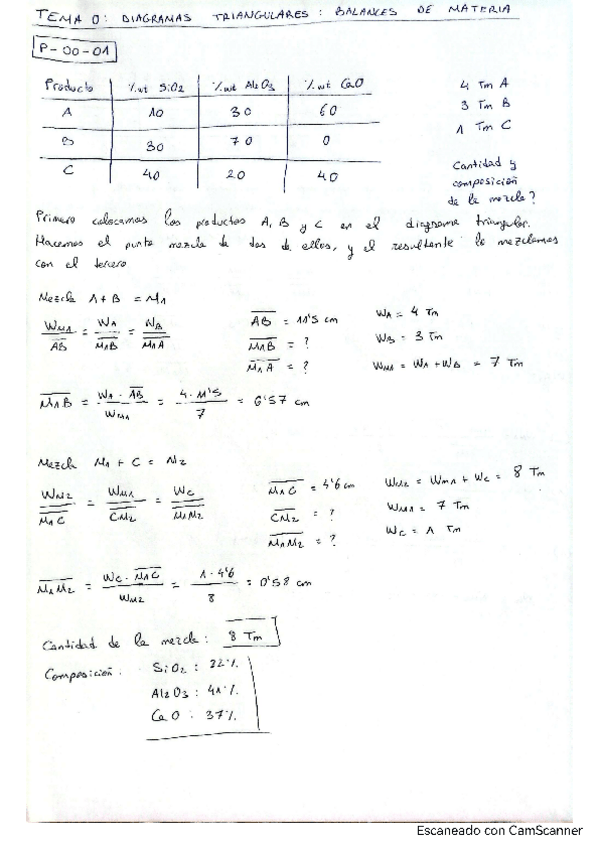 TEMA 0: DIAGRAMAS TRIANGULARES: BALANCES DE MATERIA
P-00-01
Producto %wt SiO2 %wt Al2O3 %wt CaO
A 10 30 60
B 30 70 0
C 40 20 40
4 Tm A
3 Tm B
1 Tm C
Cantidad y
composición
de la mezcla?
Primero colocamos los productos A, B y C en el diagrama triangular.
Hacemos el punto mezcla de dos de ellos, y el resultante lo mezclamos
con el tercero
Mezcla A + B = M1
WM1/AB = WA/M1B = WB/M1A
AB = 11'5 cm
M1B = ?
M1A = ?
WA = 4 Tm
WB = 3 Tm
WM1 = WA + WB = 7 Tm
M1B = WA · AB / WM1 = 4 · 11'5 / 7 = 6'57 cm
Mezcla M1 + C = M2
WM2/M1C = WM1/CM2 = WC/M1M2
M1C = 4'6 cm
CM2 = ?
M1M2 = ?
WM2 = WM1 + WC = 8 Tm
WM1 = 7 Tm
WC = 1 Tm
M1M2 = WC · M1C / WM2 = 1 · 4'6 / 8 = 0'58 cm
Cantidad de la mezcla: 8 Tm
Composición: SiO2 : 22%
Al2O3 : 41%
CaO : 37%
Escaneado con CamScanner